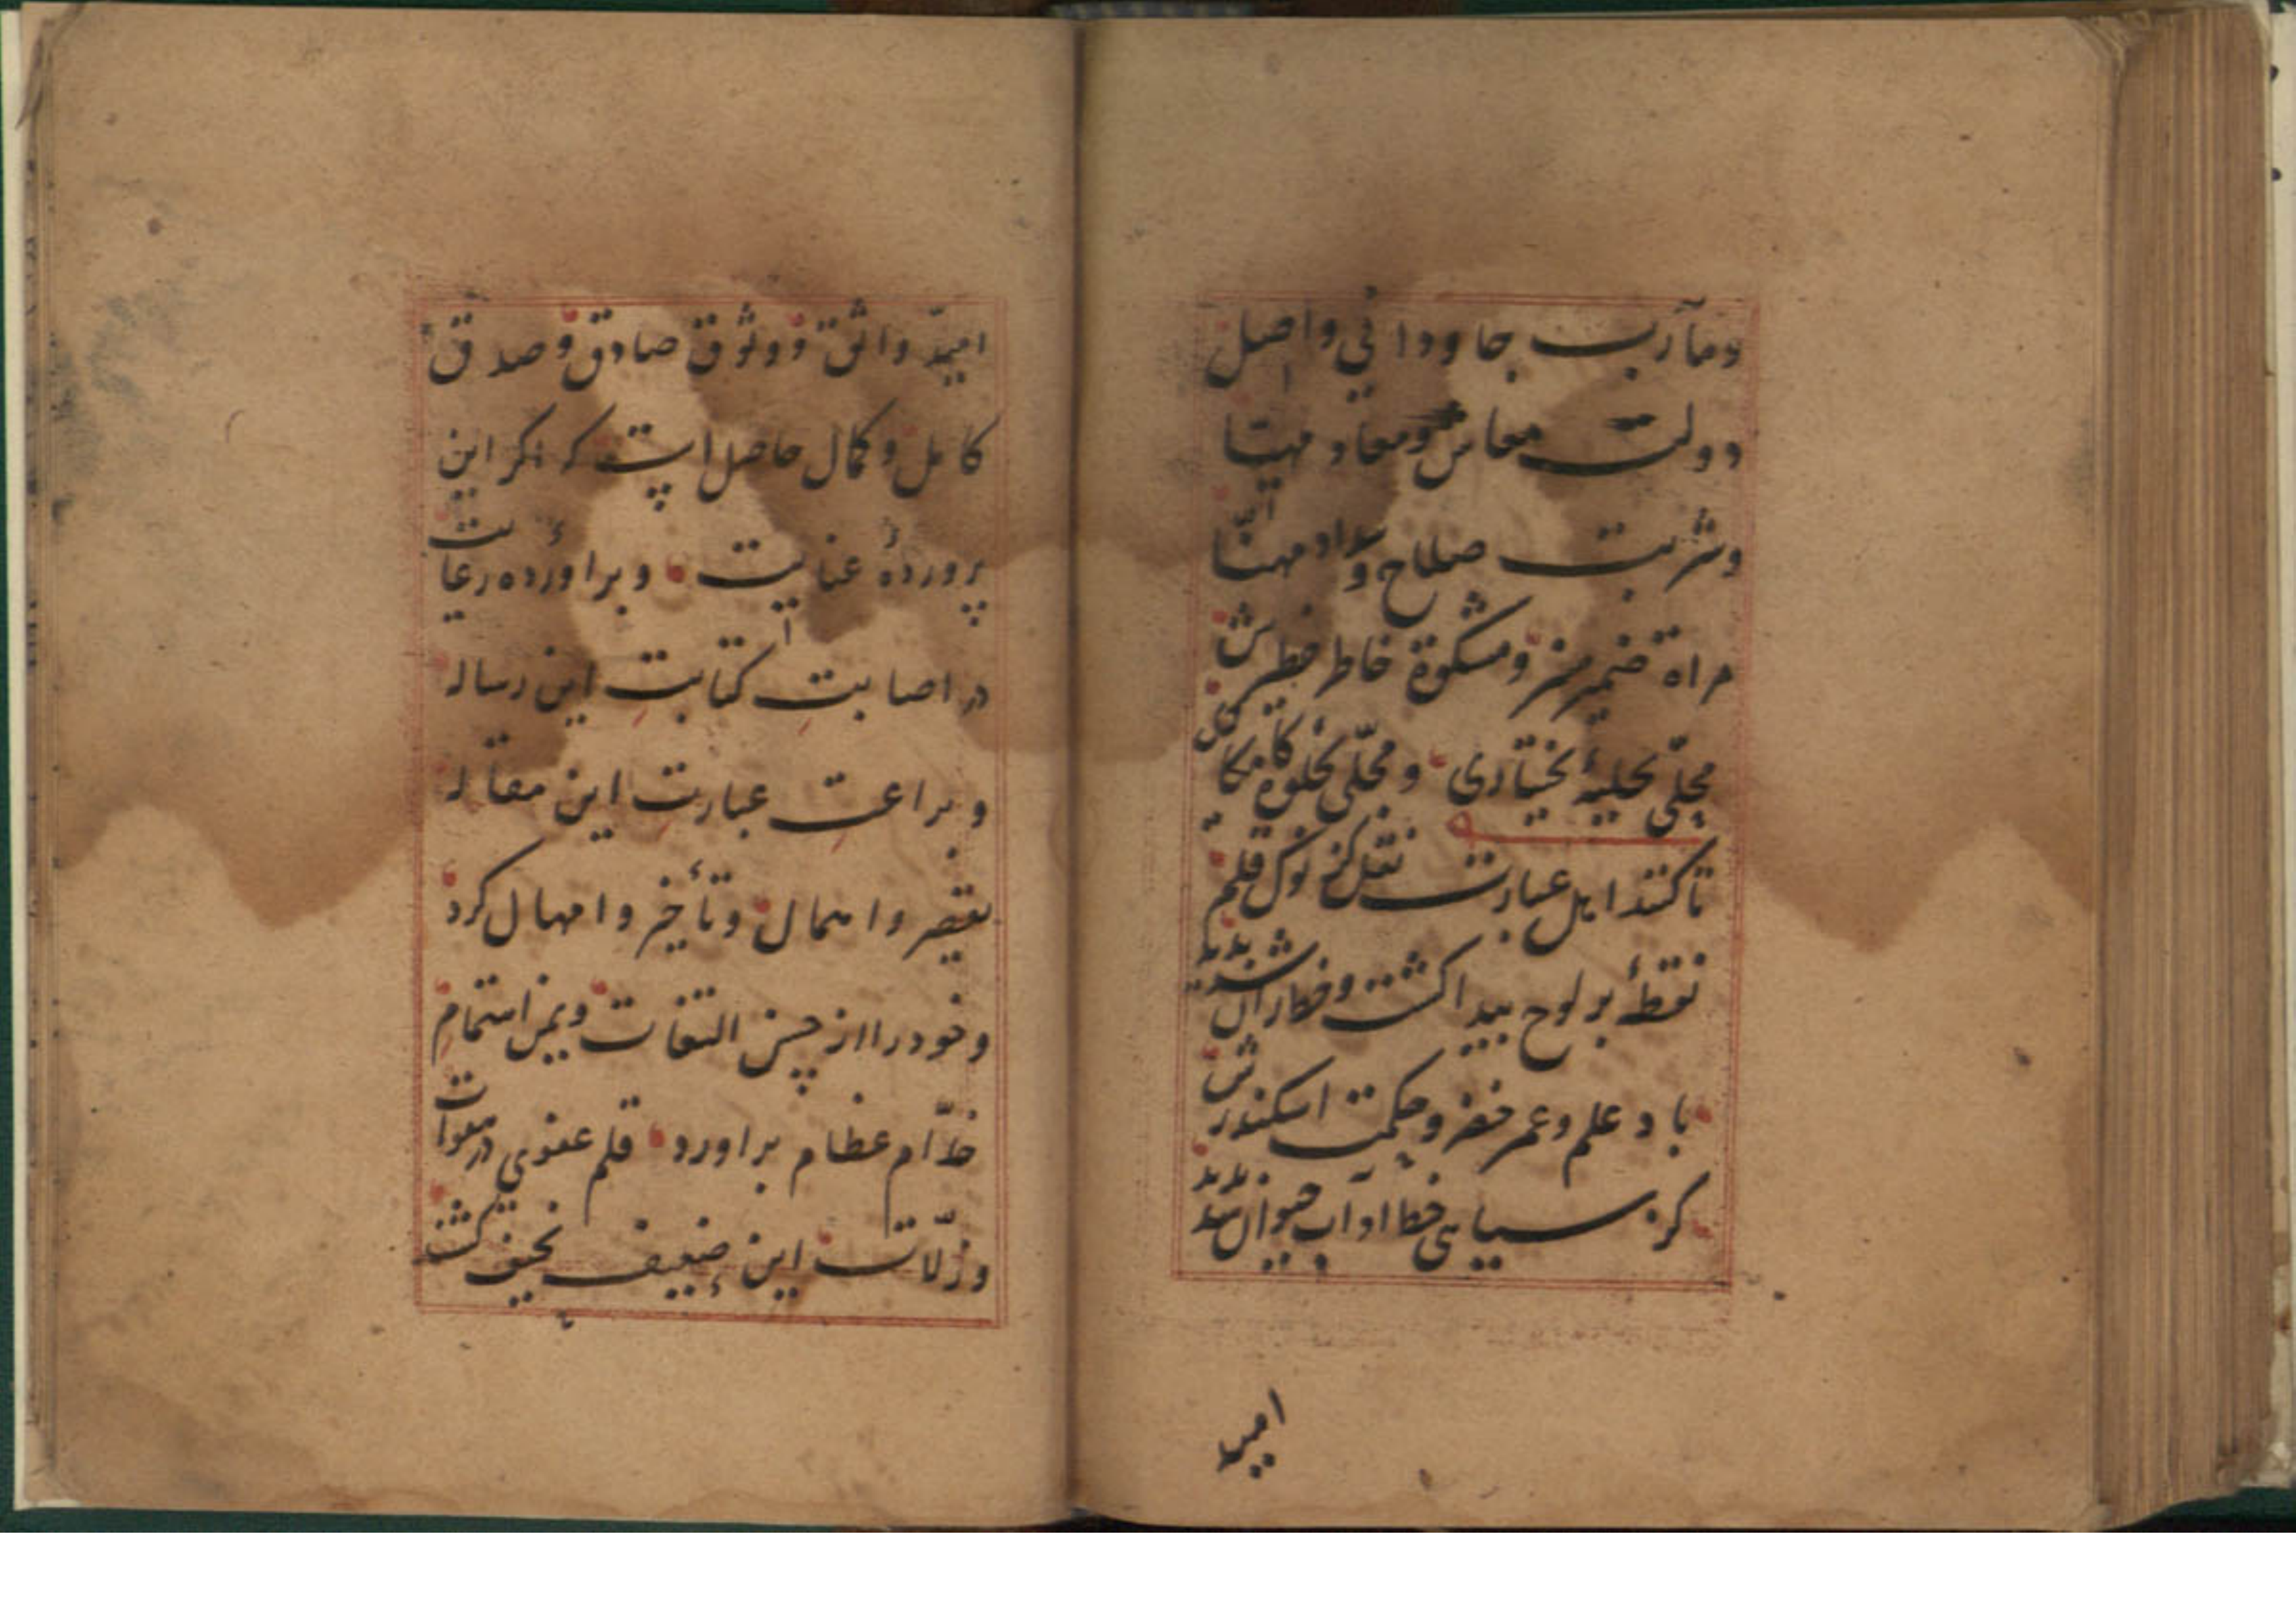 ومآرب جاودانی واصل
دولت معاش ومعاد مهیا
وشربت صلاح و سداد مهنّا
مراة ضمیر منیر ومشکوة خاطر خطیرش
مجلّی بحلیهٔ بختیاری و محلّی بجلوهٔ کامکاری
تا کنند اهل عبارت نقل کز نوک قلم
نقطهٔ بر لوح پیدا کشت وخط ازان شد پدید
باد علم وعمر خضر وحکمت اسکندرش
کز سیاهی خط او آب حیوان شد پدید
امید
امید واثق و وثوق صادق و صدق
کامل و کمال حاصل است که اکر این
پروردهٔ عنایت و براوردهٔ رعایت
در اصابت کتابت این رساله
و براعت عبارت این مقاله
تقصیر و اهمال و تأخیر و امهال کرد
وخود را از حسن التفات و یمن اهتمام
خدّام عظام براورد قلم عفوی در هفوات
وزلّات این ضعیف نحیف کشند